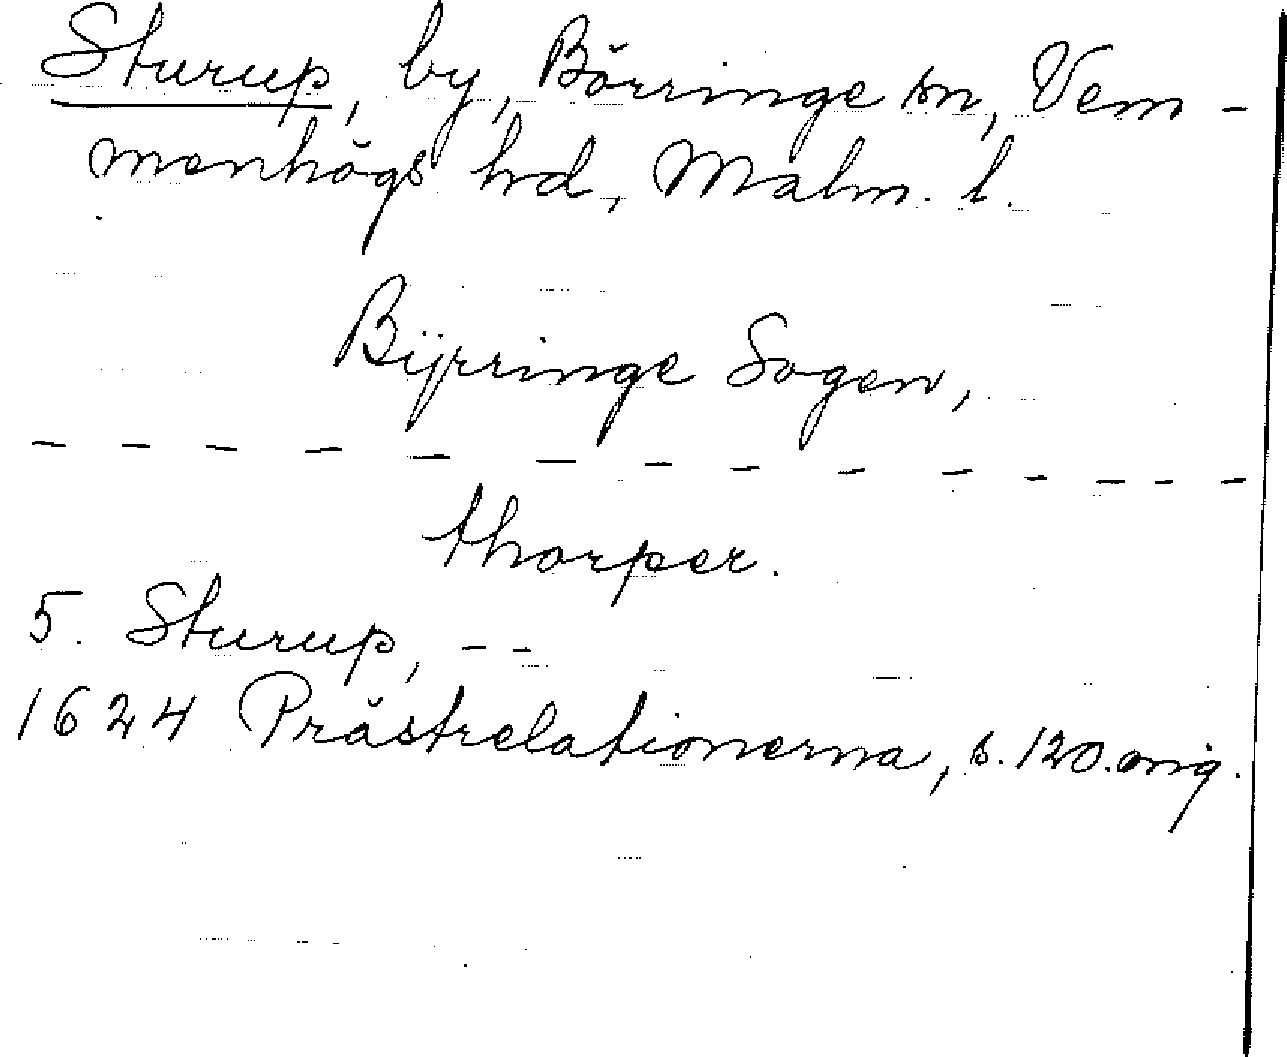 Sturup, by, Börringe sn, Vem-
menhögs hrd, Malm. l.
Bÿrringe Sogen,
- - - - - - - - - - - - -
thorper.
5. Sturup, --
1624 Prästrelationerna, s. 120. orig.